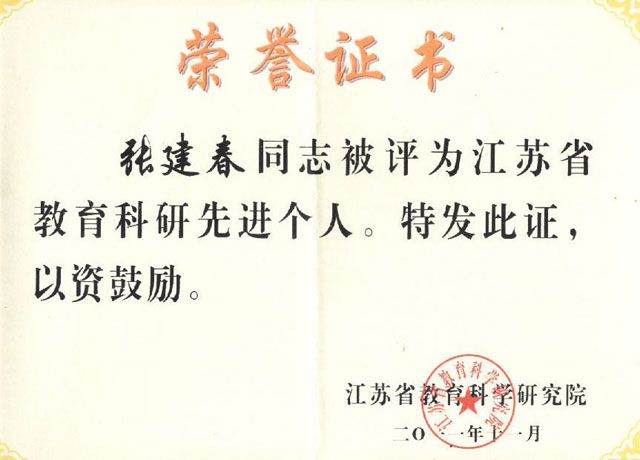 荣誉证书
张建春同志被评为江苏省
教育科研先进个人。特发此证,
以资鼓励。
江苏省教育科学研究院
二〇一一年十一月
江苏省教育科学研究院